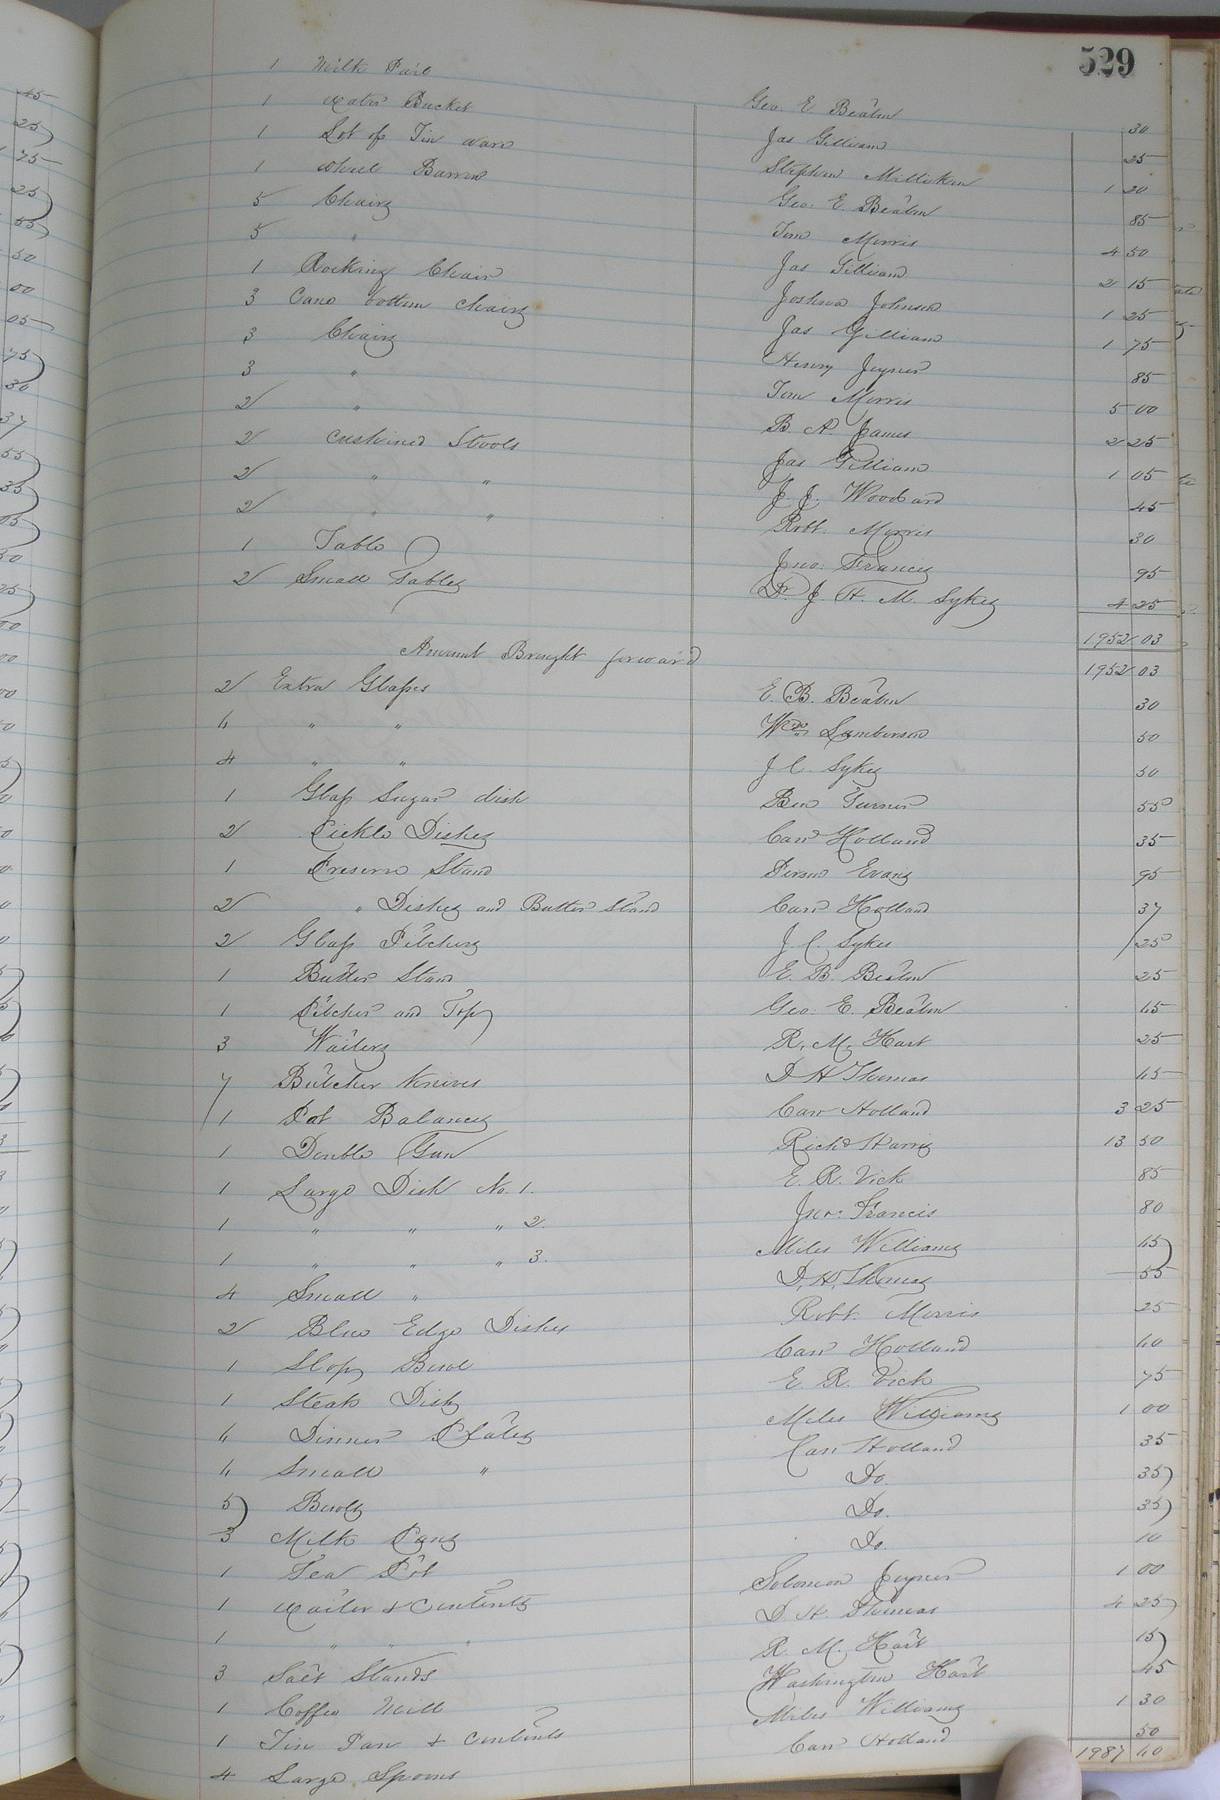 529
1 Milk Pail Geo. E Beaton 30
1 Water Bucket Jas Gilliam 25
1 Lot of Tin ware Stephen Milliken 1 20
1 Wheel Barrow Geo. E. Beaton 85
5 Chairs Tom Morris 4 50
5 " Jas Gilliam 2 15
1 Rocking Chair Joshua Johnson 1 25
3 Cane bottom chairs Jas Gilliam 1 75
3 Chairs Henry Joyner 85
3 " Tom Morris 5 00
2 " B. A. James 2 25
2 Cushined Stools Jas Gilliam 1 05
2 " " J. J. Woodard 45
2 " " Robt. Morris 30
1 Table Jno. Francis 95
2 Small Tables Dr J. H. M. Sykes 4 25
1952 03
Amount Brought forward 1952 03
2 Extra Glasses E. B. Beaton 30
6 " " Wm Lamberson 50
4 " " J C. Sykes 50
1 Glass Sugar dish Ben Turner 55
2 Pickle Dishes Carr Holland 35
1 Preserve Stand Person Evans 95
2 " Dishes and Butter Stand Carr Holland 37
2 Glass Pitchers J. C. Sykes 25
1 Butter Stand E. B. Beaton 25
1 Pitcher and Top Geo. E. Beaton 65
3 Waiters R. M. Hart 25
7 Butcher Knives D H Thomas 65
1 Pat Balances Carr Holland 3 25
1 Double Gun Richd Harris 13 50
1 Large Dish No. 1. E. R. Vick 85
1 " " " 2. Jno. Francis 80
1 " " " 3. Miles Williams 65
4 Small " D. H. Thomas 55
2 Blue Edge Dishes Robt. Morris 25
1 Slop Bowl Carr Holland 60
1 Steak Dish E. R. Vick 75
6 Dinner Plates Miles Williams 1 00
6 Small " Carr Holland 35
5 Bowls Do. 35
3 Milk Pans Do. 35
1 Tea Pot Do. 10
1 Waiter & Contents Solomon Joyner 1 00
1 " " " D. H. Thomas 4 25
3 Salt Stands R. M. Hart 15
1 Coffee Mill Washington Hart 45
1 Tin Pan & Contents Miles Williams 1 30
4 Large Spoons Carr Holland 50
1987 60